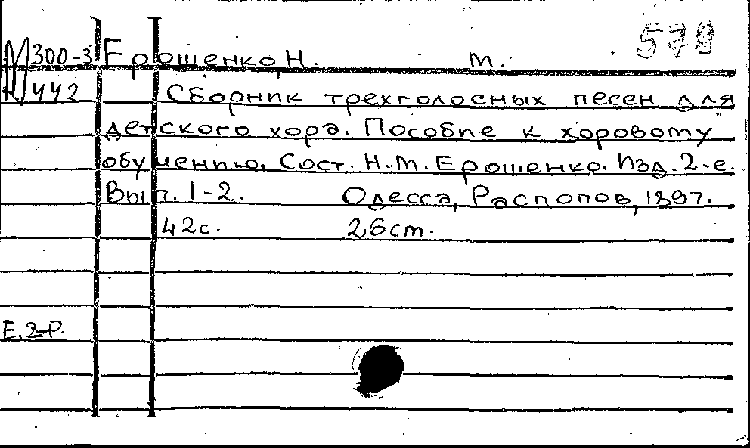 М 300-3 Ерошенко, Н. М.
442 Сборник трехголосных песен для
детского хора. Пособие к хоровому
обучению. Сост. Н.М. Ерошенко. Изд. 2-е.
Вып. 1-2. Одесса, Распопов, 1897.
42с. 26ст.